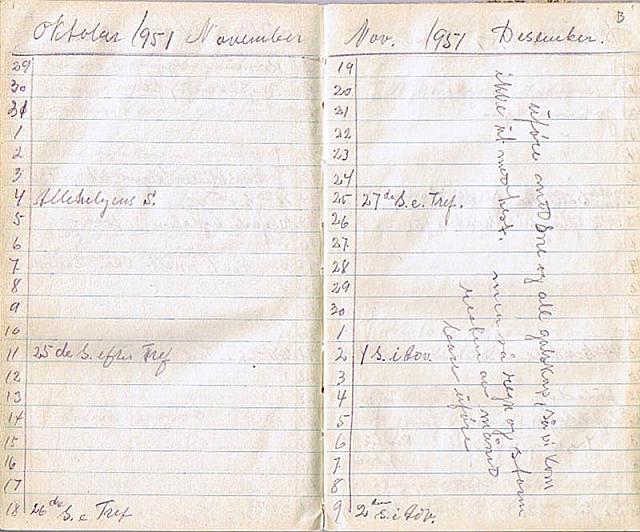 Oktober 1951 November
29
30
31
1
2
3
4 Allehelgens S.
5
6
7
8
9
10
11 25de S. efter Tref
12
13
14
15
16
17
18 26de S. e Tref
B
Nov. 1951 Desember.
19
20
21
22
23
24
25 27de S. e. Tref.
26
27
28
29
30
1
2 1 S. i Adv.
3
4
5
6
7
8
9 2den S. i Adv.
uføre snødd Sne og all galskap, så vi kom
ikke ut med hest. men så regn og storm
resten av måned
bare uføre